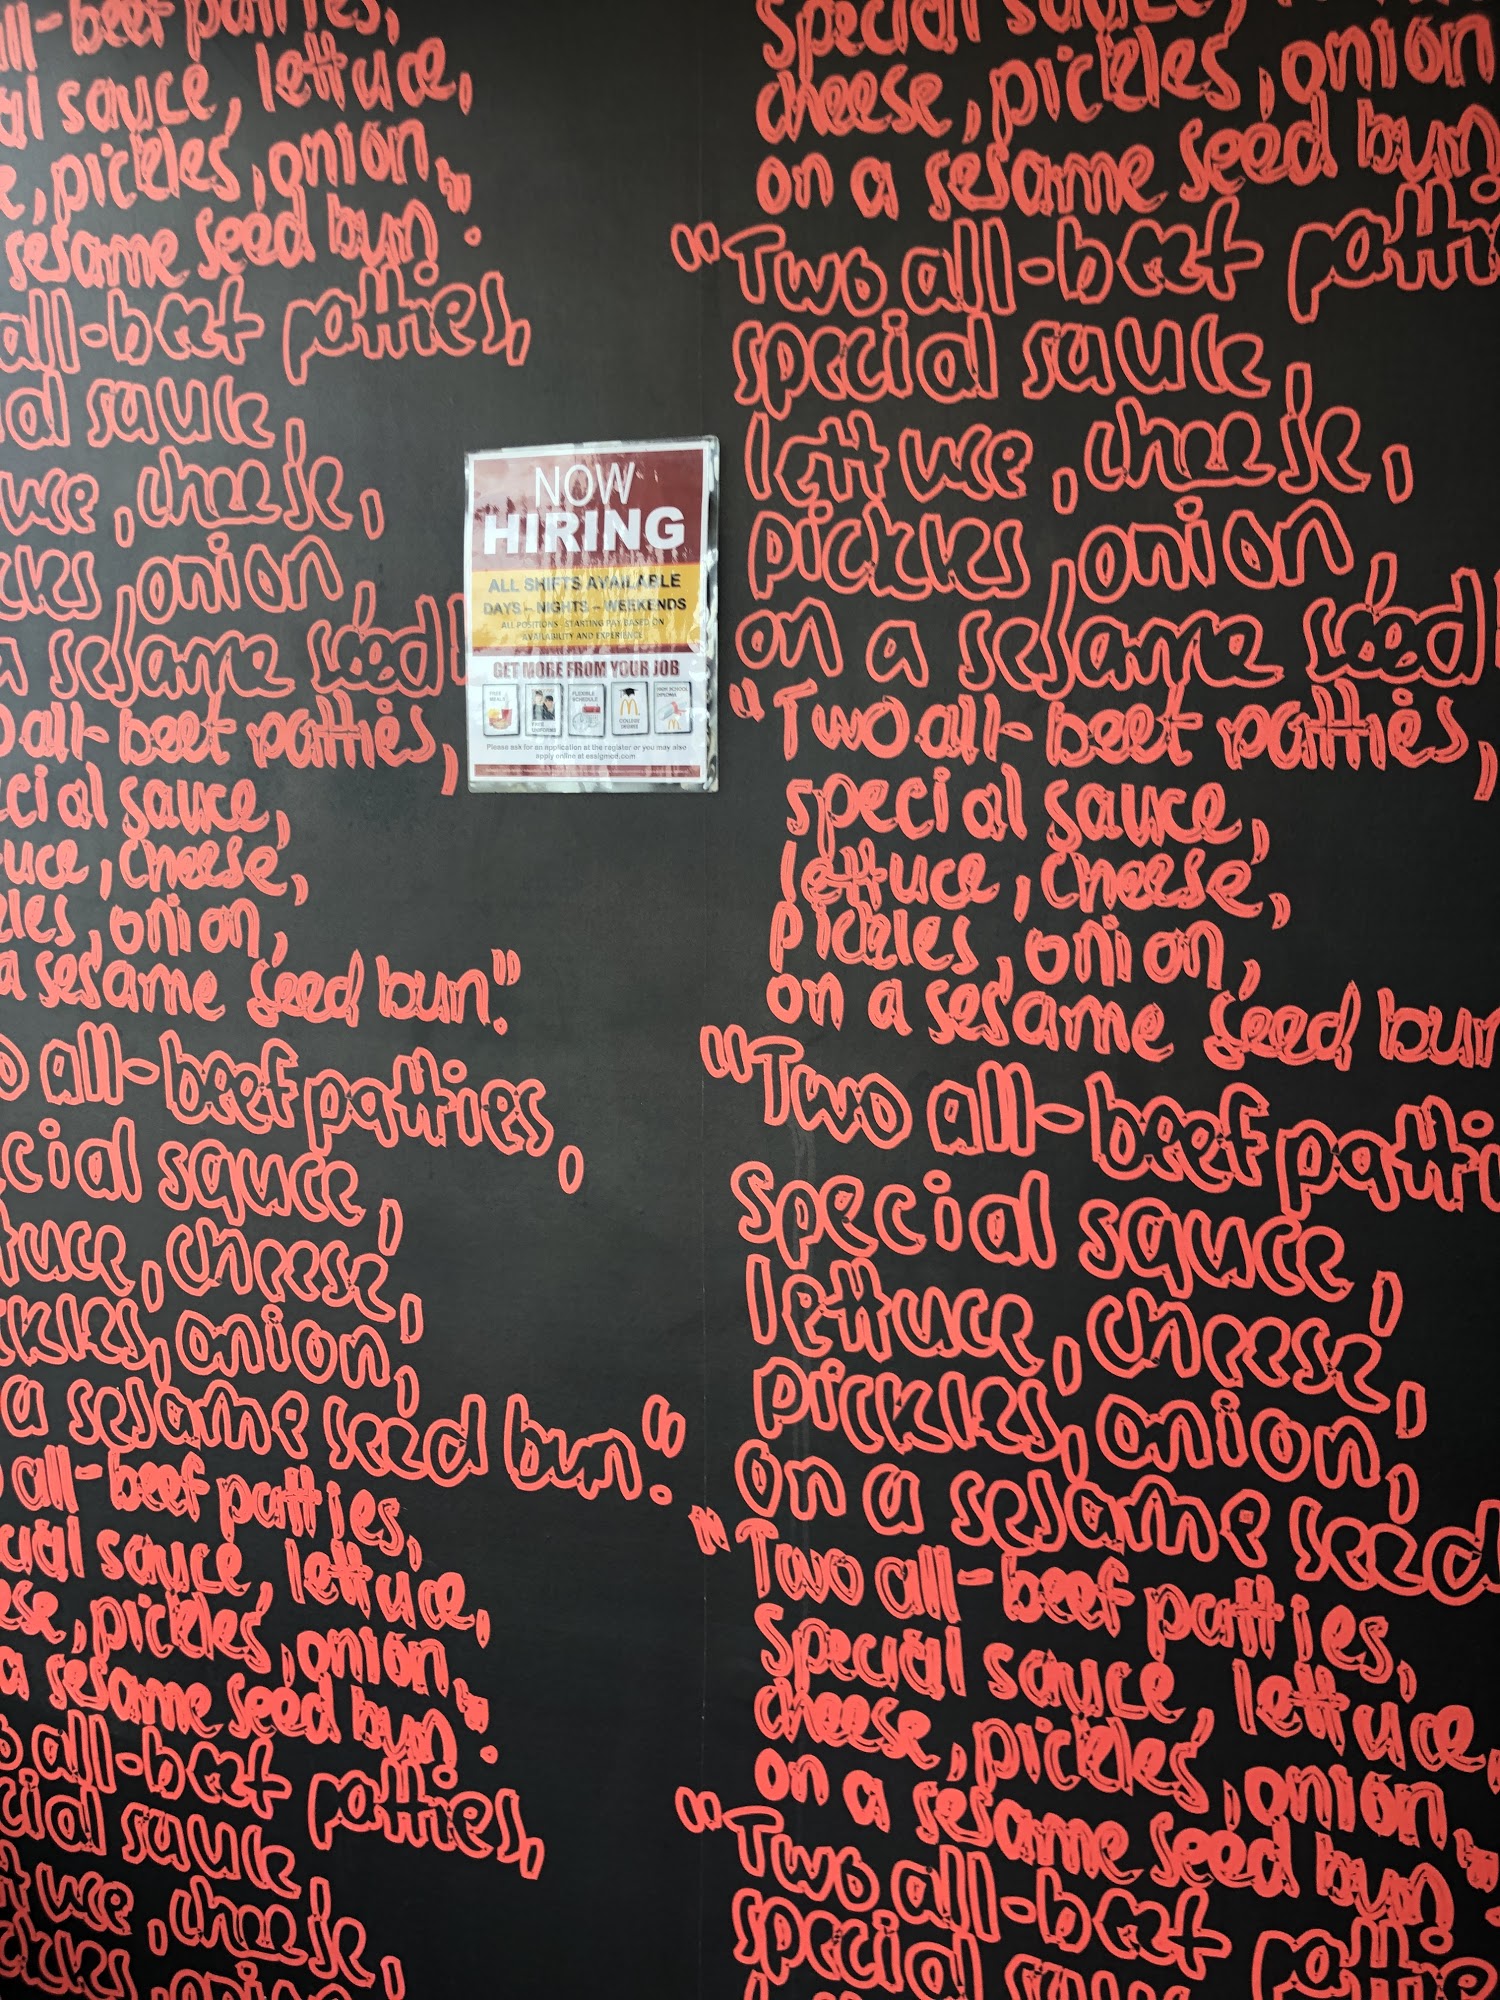 all-beef patties,
al sauce, lettuce,
e, pickles, onion,
sesame seed bun".
all-beef patties,
al sauce,
uce, cheese,
ckles, onion,
a sesame seed b
o all-beef patties,
cial sauce,
tuce, cheese,
kles, onion,
a sesame seed bun."
o all-beef patties,
cial sauce,
tuce, cheese,
ckles, onion,
a sesame seed bun."
o all-beef patties,
cial sauce, lettuce,
ese, pickles, onion,
a sesame seed bun".
o all-beef patties,
cial sauce,
tuce, cheese,
ckles, onion,
NOW
HIRING
ALL SHIFTS AVAILABLE
DAYS – NIGHTS – WEEKENDS
ALL POSITIONS STARTING PAY BASED ON
AVAILABILITY AND EXPERIENCE
GET MORE FROM YOUR JOB
FREE
MEALS
FREE
UNIFORMS
FLEXIBLE
SCHEDULE
COLLEGE
DEGREE
HIGH SCHOOL
DIPLOMA
Please ask for an application at the register or you may also
apply online at essigmcd.com
Special sauce,
cheese, pickles, onion
on a sesame seed bun
"Two all-beef patti
special sauce,
lettuce, cheese,
pickles, onion,
on a sesame seed b
"Two all-beef patties,
special sauce,
lettuce, cheese,
pickles, onion,
on a sesame seed bun
"Two all-beef patti
special sauce,
lettuce, cheese,
pickles, onion,
on a sesame seed
"Two all-beef patties,
special sauce, lettuce,
cheese, pickles, onion,
on a sesame seed bun".
"Two all-beef pattie
special sauce